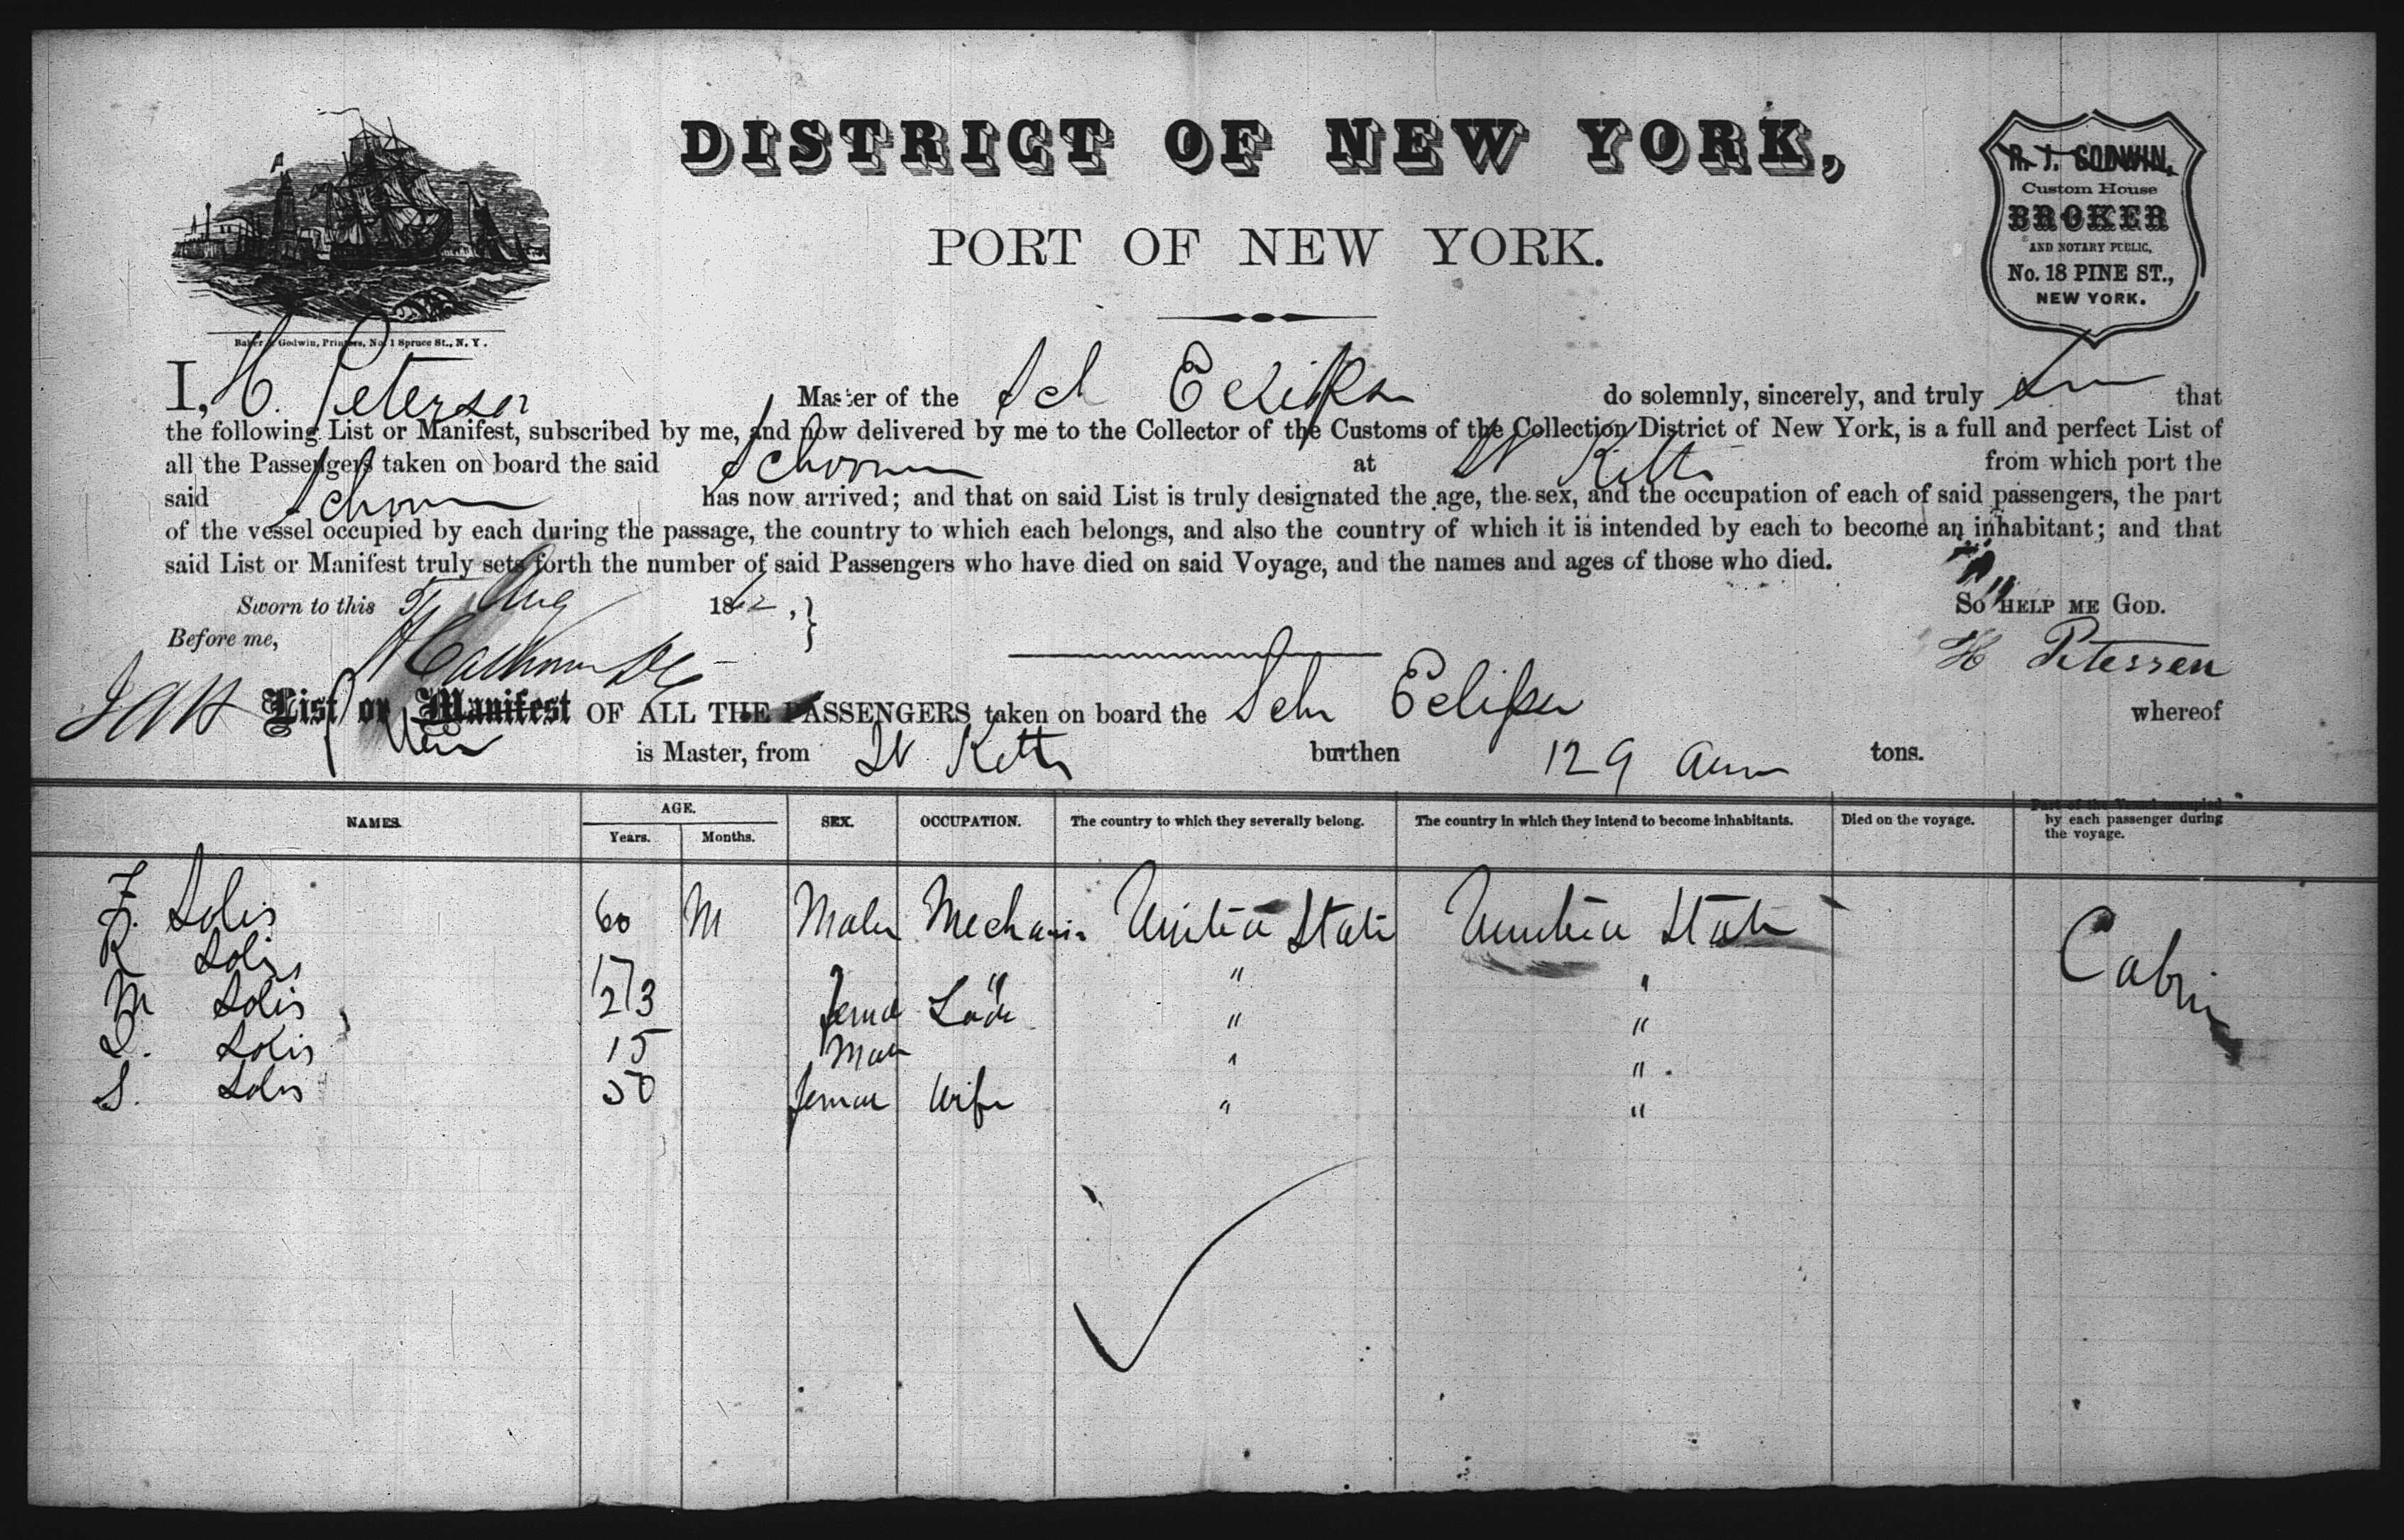 DISTRICT OF NEW YORK,
PORT OF NEW YORK.
R. J. GODWIN,
Custom House
BROKER
AND NOTARY PUBLIC,
No. 18 PINE ST.,
NEW YORK.
Baker & Godwin, Printers, No. 1 Spruce St., N. Y.
I, H. Peterson Master of the Sch Eclipse do solemnly, sincerely, and truly that
the following List or Manifest, subscribed by me, and now delivered by me to the Collector of the Customs of the Collection District of New York, is a full and perfect List of
all the Passengers taken on board the said Schooner at St Kitts from which port the
said Schooner has now arrived; and that on said List is truly designated the age, the sex, and the occupation of each of said passengers, the part
of the vessel occupied by each during the passage, the country to which each belongs, and also the country of which it is intended by each to become an inhabitant; and that
said List or Manifest truly sets forth the number of said Passengers who have died on said Voyage, and the names and ages of those who died.
Sworn to this 5 Aug 18 2, } So help me God.
Before me, H Petersen
List or Manifest OF ALL THE PASSENGERS taken on board the Schr Eclipse whereof
is Master, from St Kitts burthen 129 tons.
NAMES. AGE. SEX. OCCUPATION. The country to which they severally belong. The country in which they intend to become inhabitants. Died on the voyage. Part of the Vessel occupied by each passenger during the voyage.
Years. Months.
F. Solis 60 M Male Mechanic United State United State Cabin
R Solis 17 " " "
M Solis 23 Female Lade " "
Solis 15 Male " "
S. Solis 50 Female Wife " "